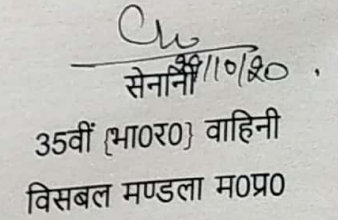 सेनानी /10/20
35वीं {भा0र0} वाहिनी
विसबल मण्डला म0प्र0